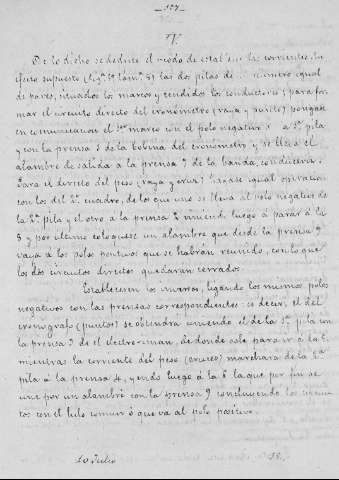 157
De lo dicho se deduce el modo de establecer las corrientes. En
efecto supuesto (fig.ª 1ª lám.ª 5) las dos pilas de número igual
de pares, situados los marcos y tendidos los conductores; para for-
mar el circuito directo del cronómetro (raya y punto) pongase
en comunicacion el 1er marco con el polo negativo a 1ª pila
y con la prensa 3 de la bobina del cronómetro y se lleva el
alambre de salida a la prensa 9 de la banda, conductora.
Para el directo del peso (raya y cruz) hagase igual operacion
con los del 2º cuadro, de los que uno se lleva al polo negativo de
la 2ª pila y el otro a la prensa uniendo luego á parar á la
5 y por ultimo coloquese un alambre que desde la prensa 9
vaya á los polos positivos que se habrán reunido, con lo que
los dos circuitos directos quedaran cerrados.
Establecense los inversos, ligando los mismos polos
negativos con las prensas correspondientes: es decir, el del
cronografo (puntos) se obtendrá uniendo el de la 1ª pila con
la prensa 3 de el electro-iman, de donde sale para ir a la 6,
mientras la corriente del peso (cruces) marchará de la 2ª
pila á la prensa 4, yendo luego á la 8 la que por fin se
une por un alambre con la prensa 9 concluyendo los circui-
tos con el hilo comun ó que va al polo positivo.
10 Julio
38.